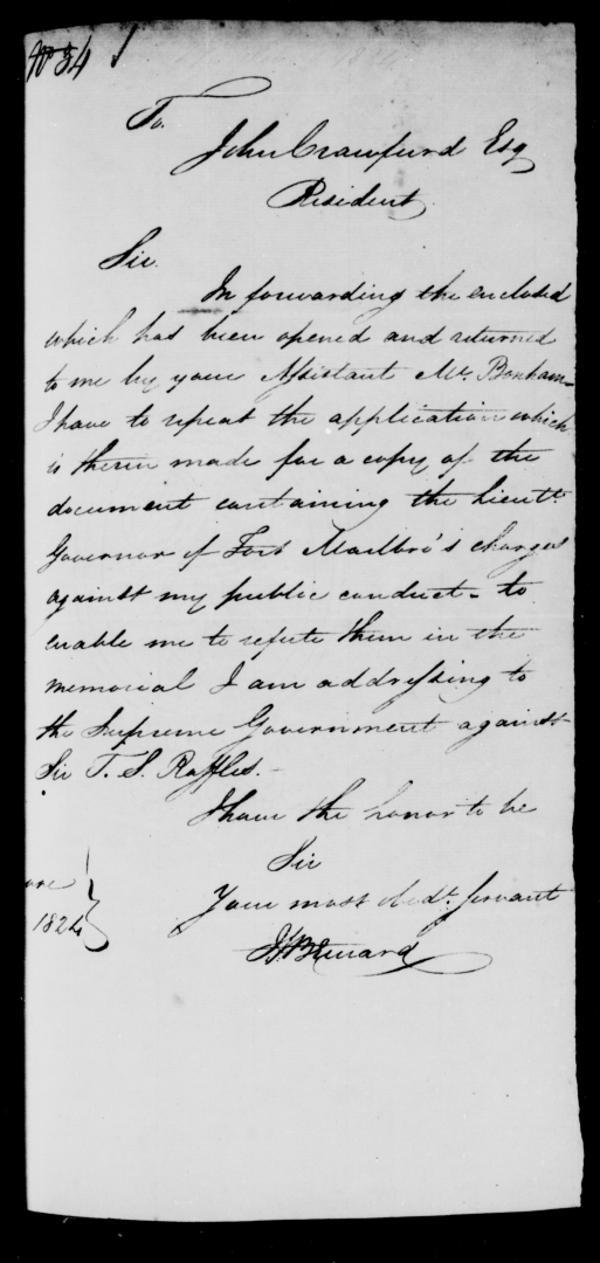 No 54
To.
John Crawfurd Esq
Resident
Sir.
In forwarding the enclosed
which has been opened and returned
to me by your Assistant Mr. Bonham -
I have to repeat the application which
is therein made for a copy of the
document containing the Lieutt.
Governor of Fort Marlbro's charges
against my public conduct - to
enable me to refute them in the
memorial I am addressing to
the Supreme Government against
Sir T. S. Raffles. -
I have the honor to be
Sir
Your most obedt. servant
ore
1824